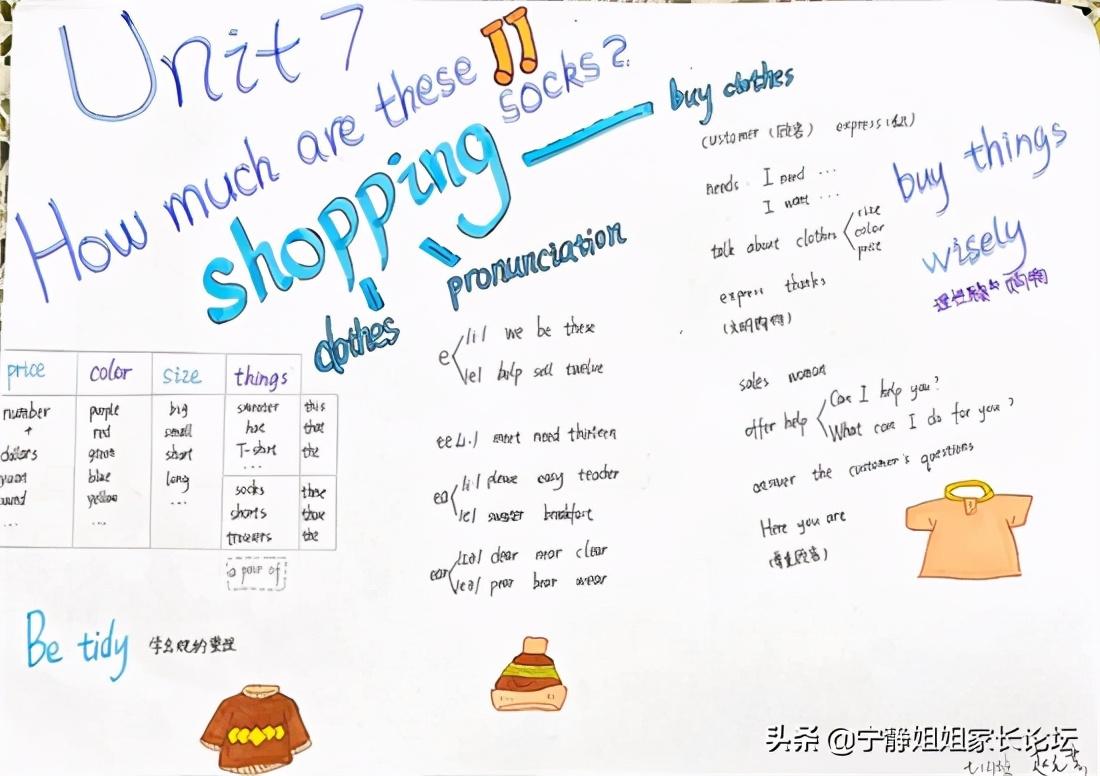 Unit 7
How much are these socks?
shopping
buy clothes
customer (顾客) express (礼)
needs I need ...
I want ...
talk about clothes
size
color
price
express thanks
(文明购物)
buy things
wisely
购物
pronunciation
e
/i:/ we be these
/e/ help sell twelve
ee /i:/ meet need thirteen
ea
/i:/ please easy teacher
/e/ sweater breakfast
ear
/iə/ dear near clear
/eə/ pear bear wear
clothes
price color size things
number purple big sweater this
+ red small hat that
dollars green short T-shirt the
yuan blue long ...
pound yellow ... socks these
... ... shorts those
trousers the
a pair of
sales woman
offer help
Can I help you?
What can I do for you?
answer the customer's questions
Here you are
(尊重顾客)
Be tidy 学会规约整理
头条 @宁静姐姐家长论坛